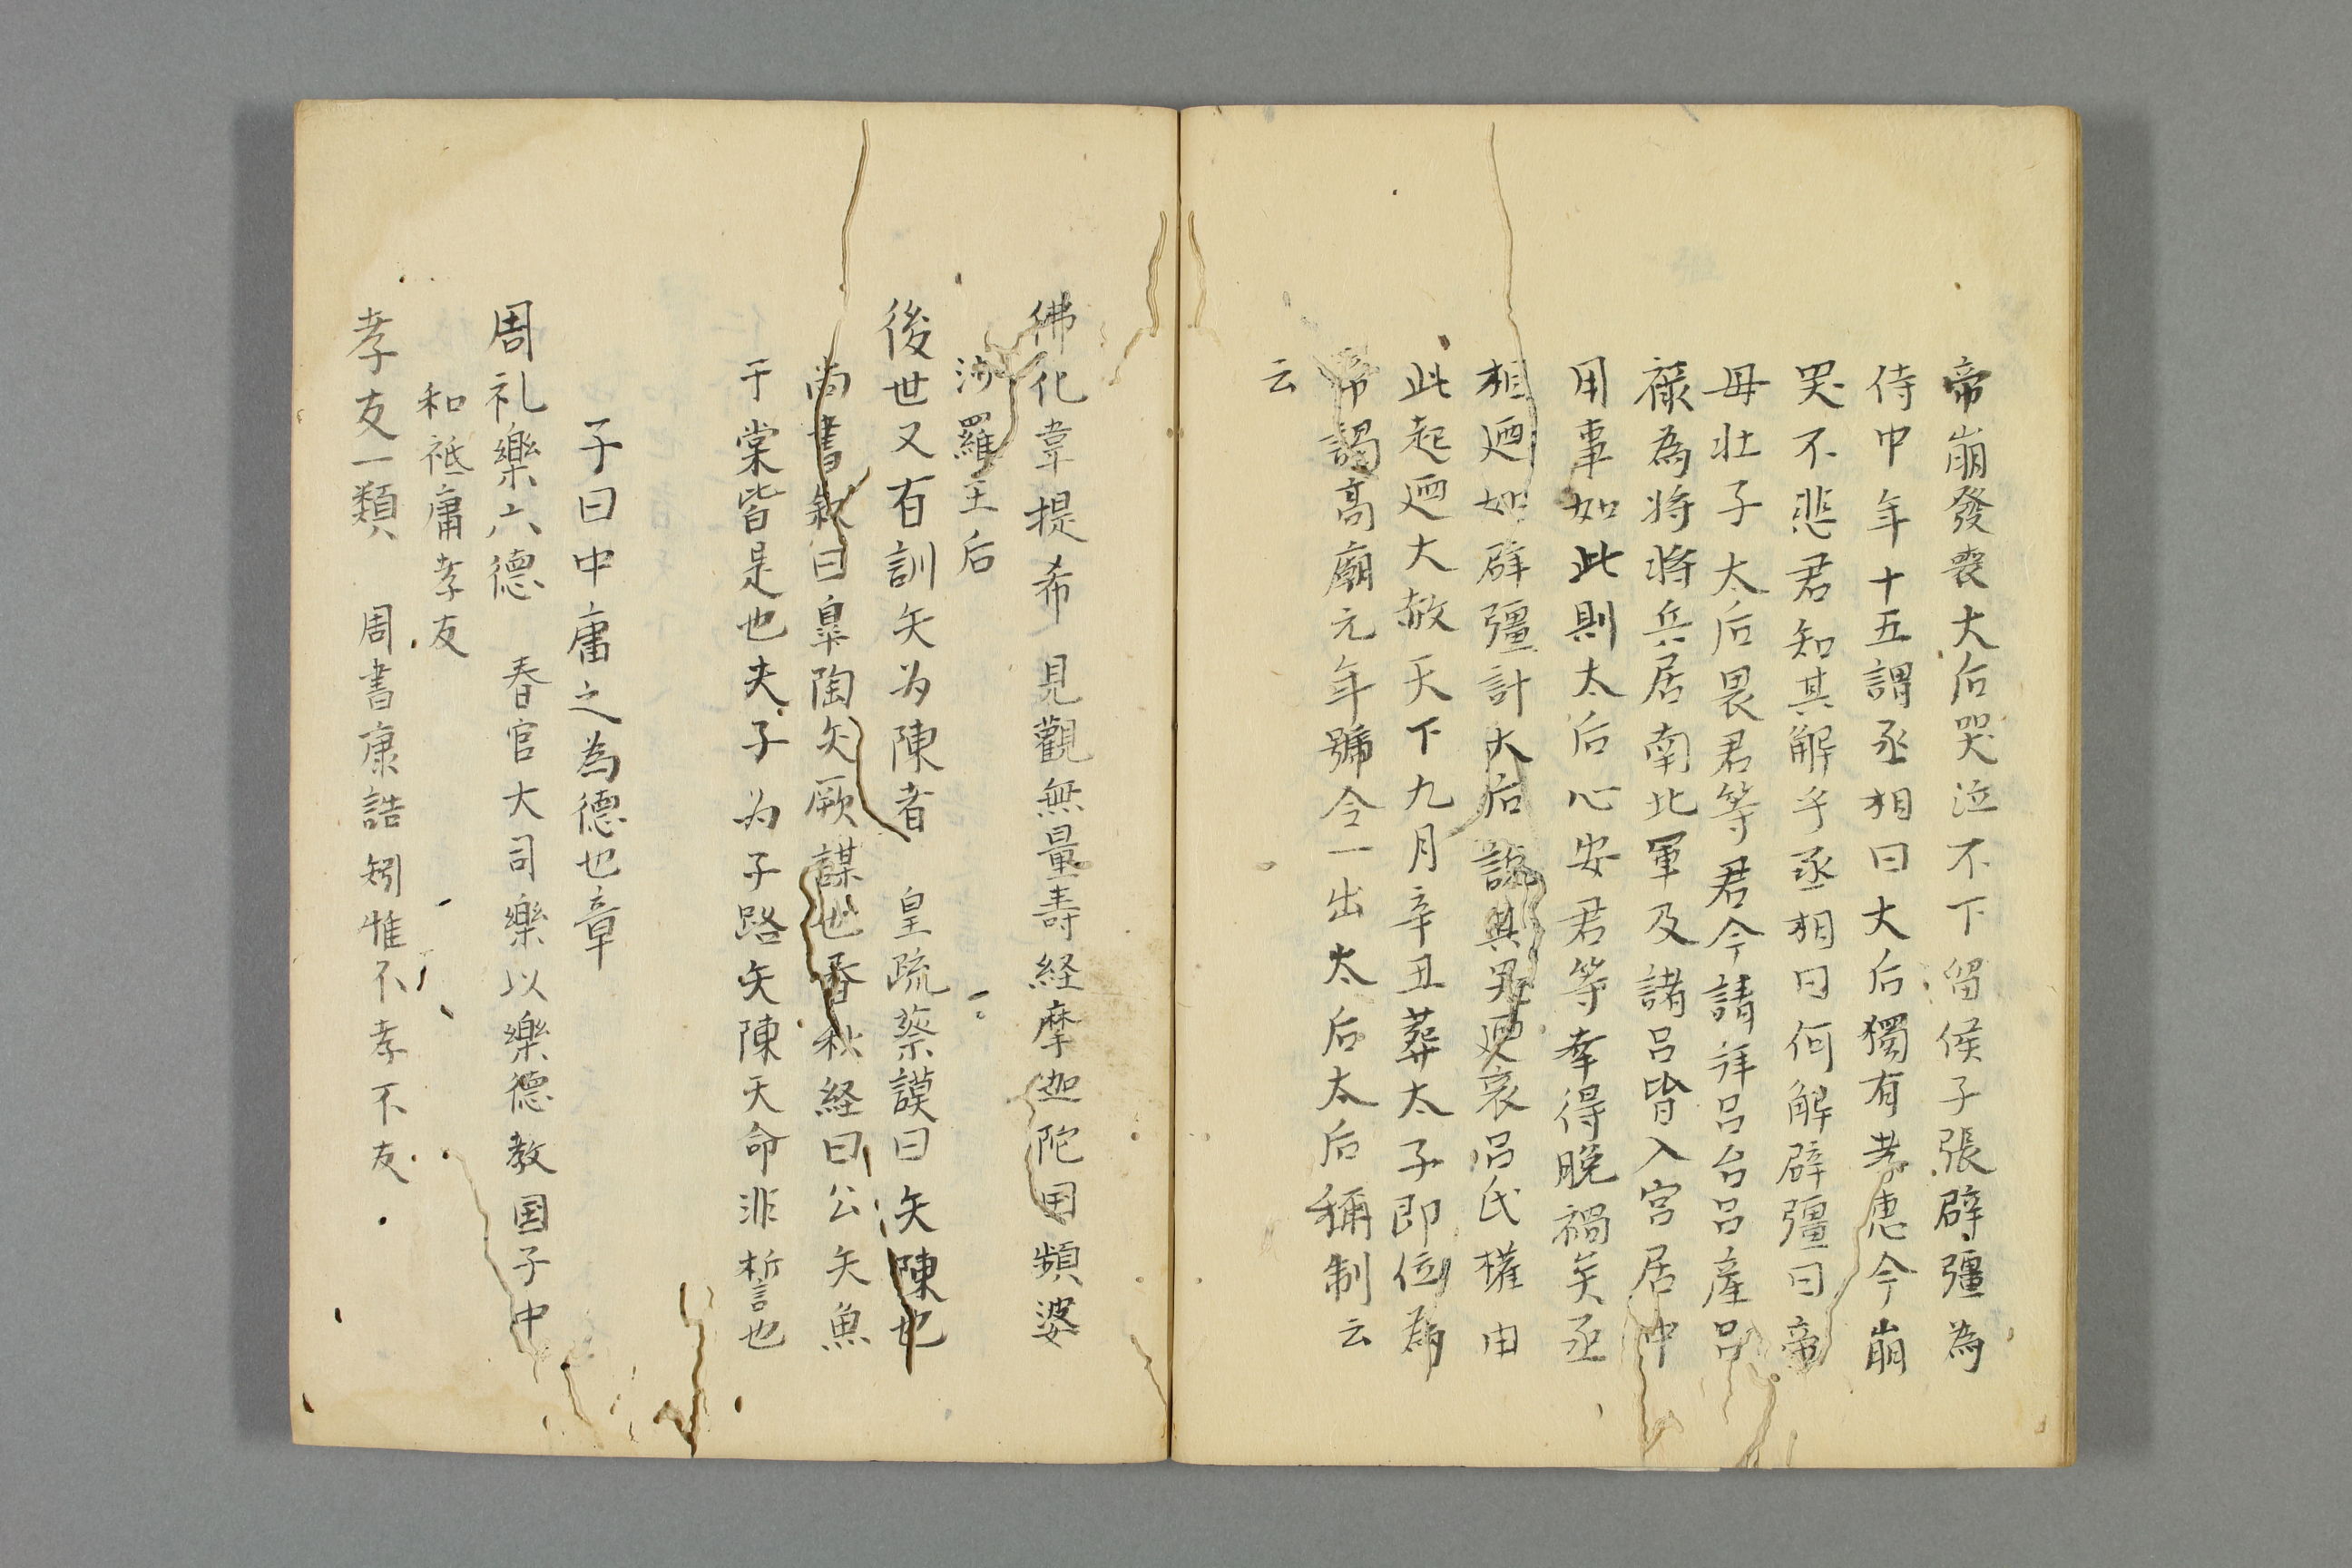 帝崩發喪大后哭泣不下留侯子張辟彊為
侍中年十五謂丞相曰大后獨有孝惠今崩
哭不悲君知其解乎丞相曰何解辟彊曰帝
毋壮子太后畏君等君今請拜呂台呂產呂
禄為将将兵居南北軍及諸呂皆入宮居中
用事如此則太后心安君等幸得脱禍矣丞
相迺如辟彊計大后說其哭迺哀呂氏權由
此起迺大赦天下九月辛丑葬太子即位為
帝謁高廟元年號令一出太后太后稱制云
云
佛化韋提希 見觀無量寿経摩迦陀国頻婆
沙羅王后
後世又有訓矢为陳者 皇疏蔡謨曰矢陳也
尚書叙曰皐陶矢厥謀也春秋経曰公矢魚
于棠皆是也夫子为子路矢陳天命非誓也
子曰中庸之為德也章
周礼樂六德 春官大司樂以樂德教国子中
和祗庸孝友
孝友一類 周書康誥矧惟不孝不友